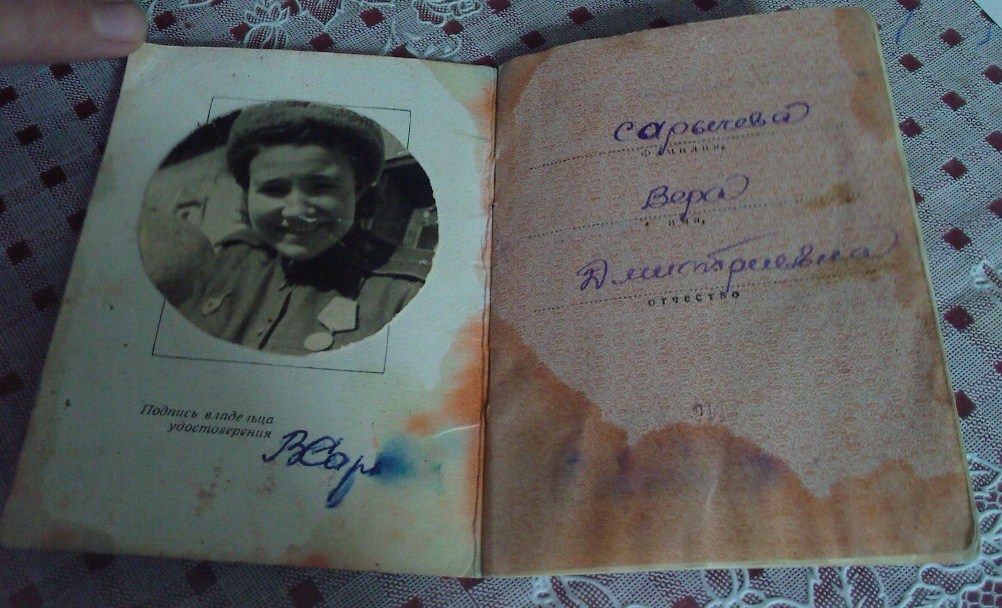 Подпись владельца
удостоверения
ВСар
Сарычева
фамилия,
Вера
имя,
Дмитриевна
отчество